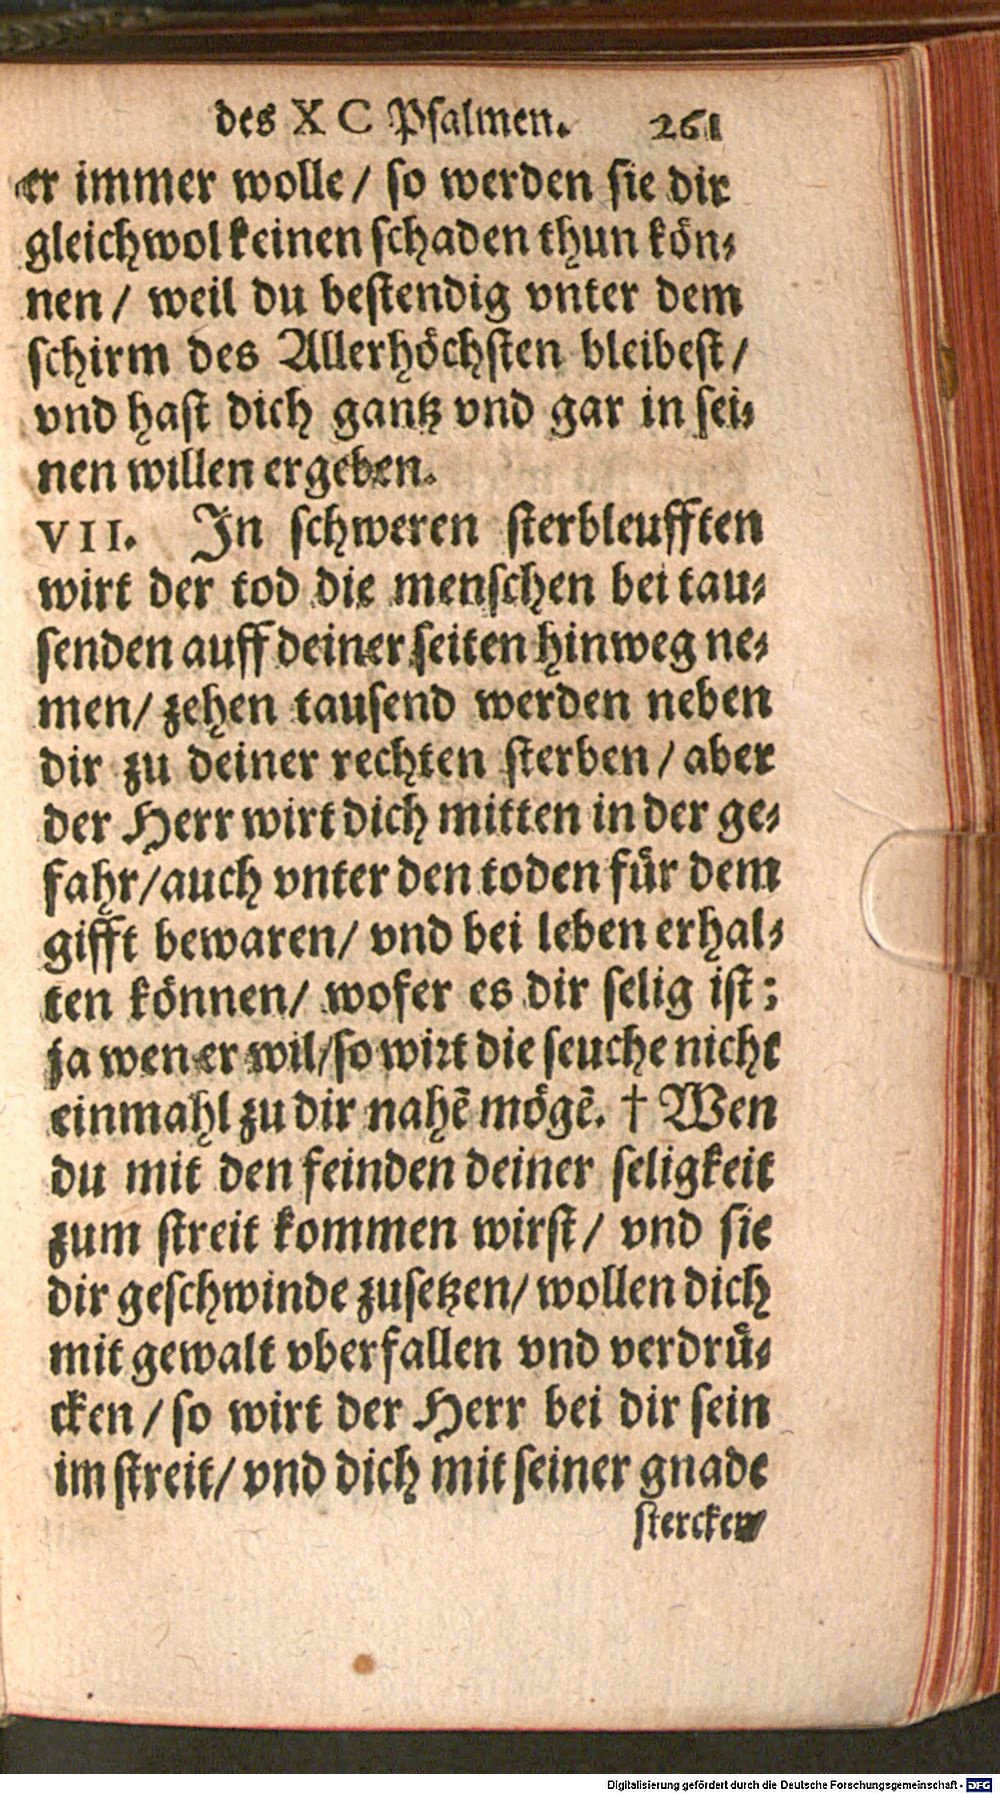 des XC Psalmen. 261
er immer wolle / so werden sie dir
gleichwol keinen schaden thun kön⸗
nen / weil du bestendig vnter dem
schirm des Allerhöchsten bleibest /
vnd hast dich gantz vnd gar in sei⸗
nen willen ergeben.
VII. In schweren sterbleufften
wirt der tod die menschen bei tau⸗
senden auff deiner seiten hinweg ne⸗
men / zehen tausend werden neben
dir zu deiner rechten sterben / aber
der Herr wirt dich mitten in der ge⸗
fahr / auch vnter den toden fuͤr dem
gifft bewaren / vnd bei leben erhal⸗
ten können / wofer es dir selig ist;
ja wen er wil / so wirt die seuche nicht
einmahl zu dir nahẽ mögẽ. † Wen
du mit den feinden deiner seligkeit
zum streit kommen wirst / vnd sie
dir geschwinde zusetzen / wollen dich
mit gewalt vberfallen vnd verdruͤ⸗
cken / so wirt der Herr bei dir sein
im streit / vnd dich mit seiner gnade
stercken
Digitalisierung gefördert durch die Deutsche Forschungsgemeinschaft - DFG